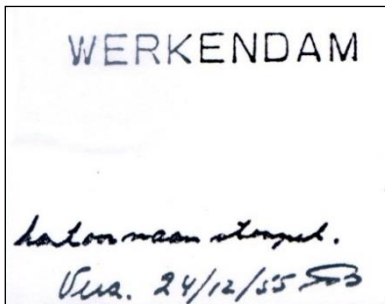 WERKENDAM
kantoornaam stempel.
Verz. 24/12/55